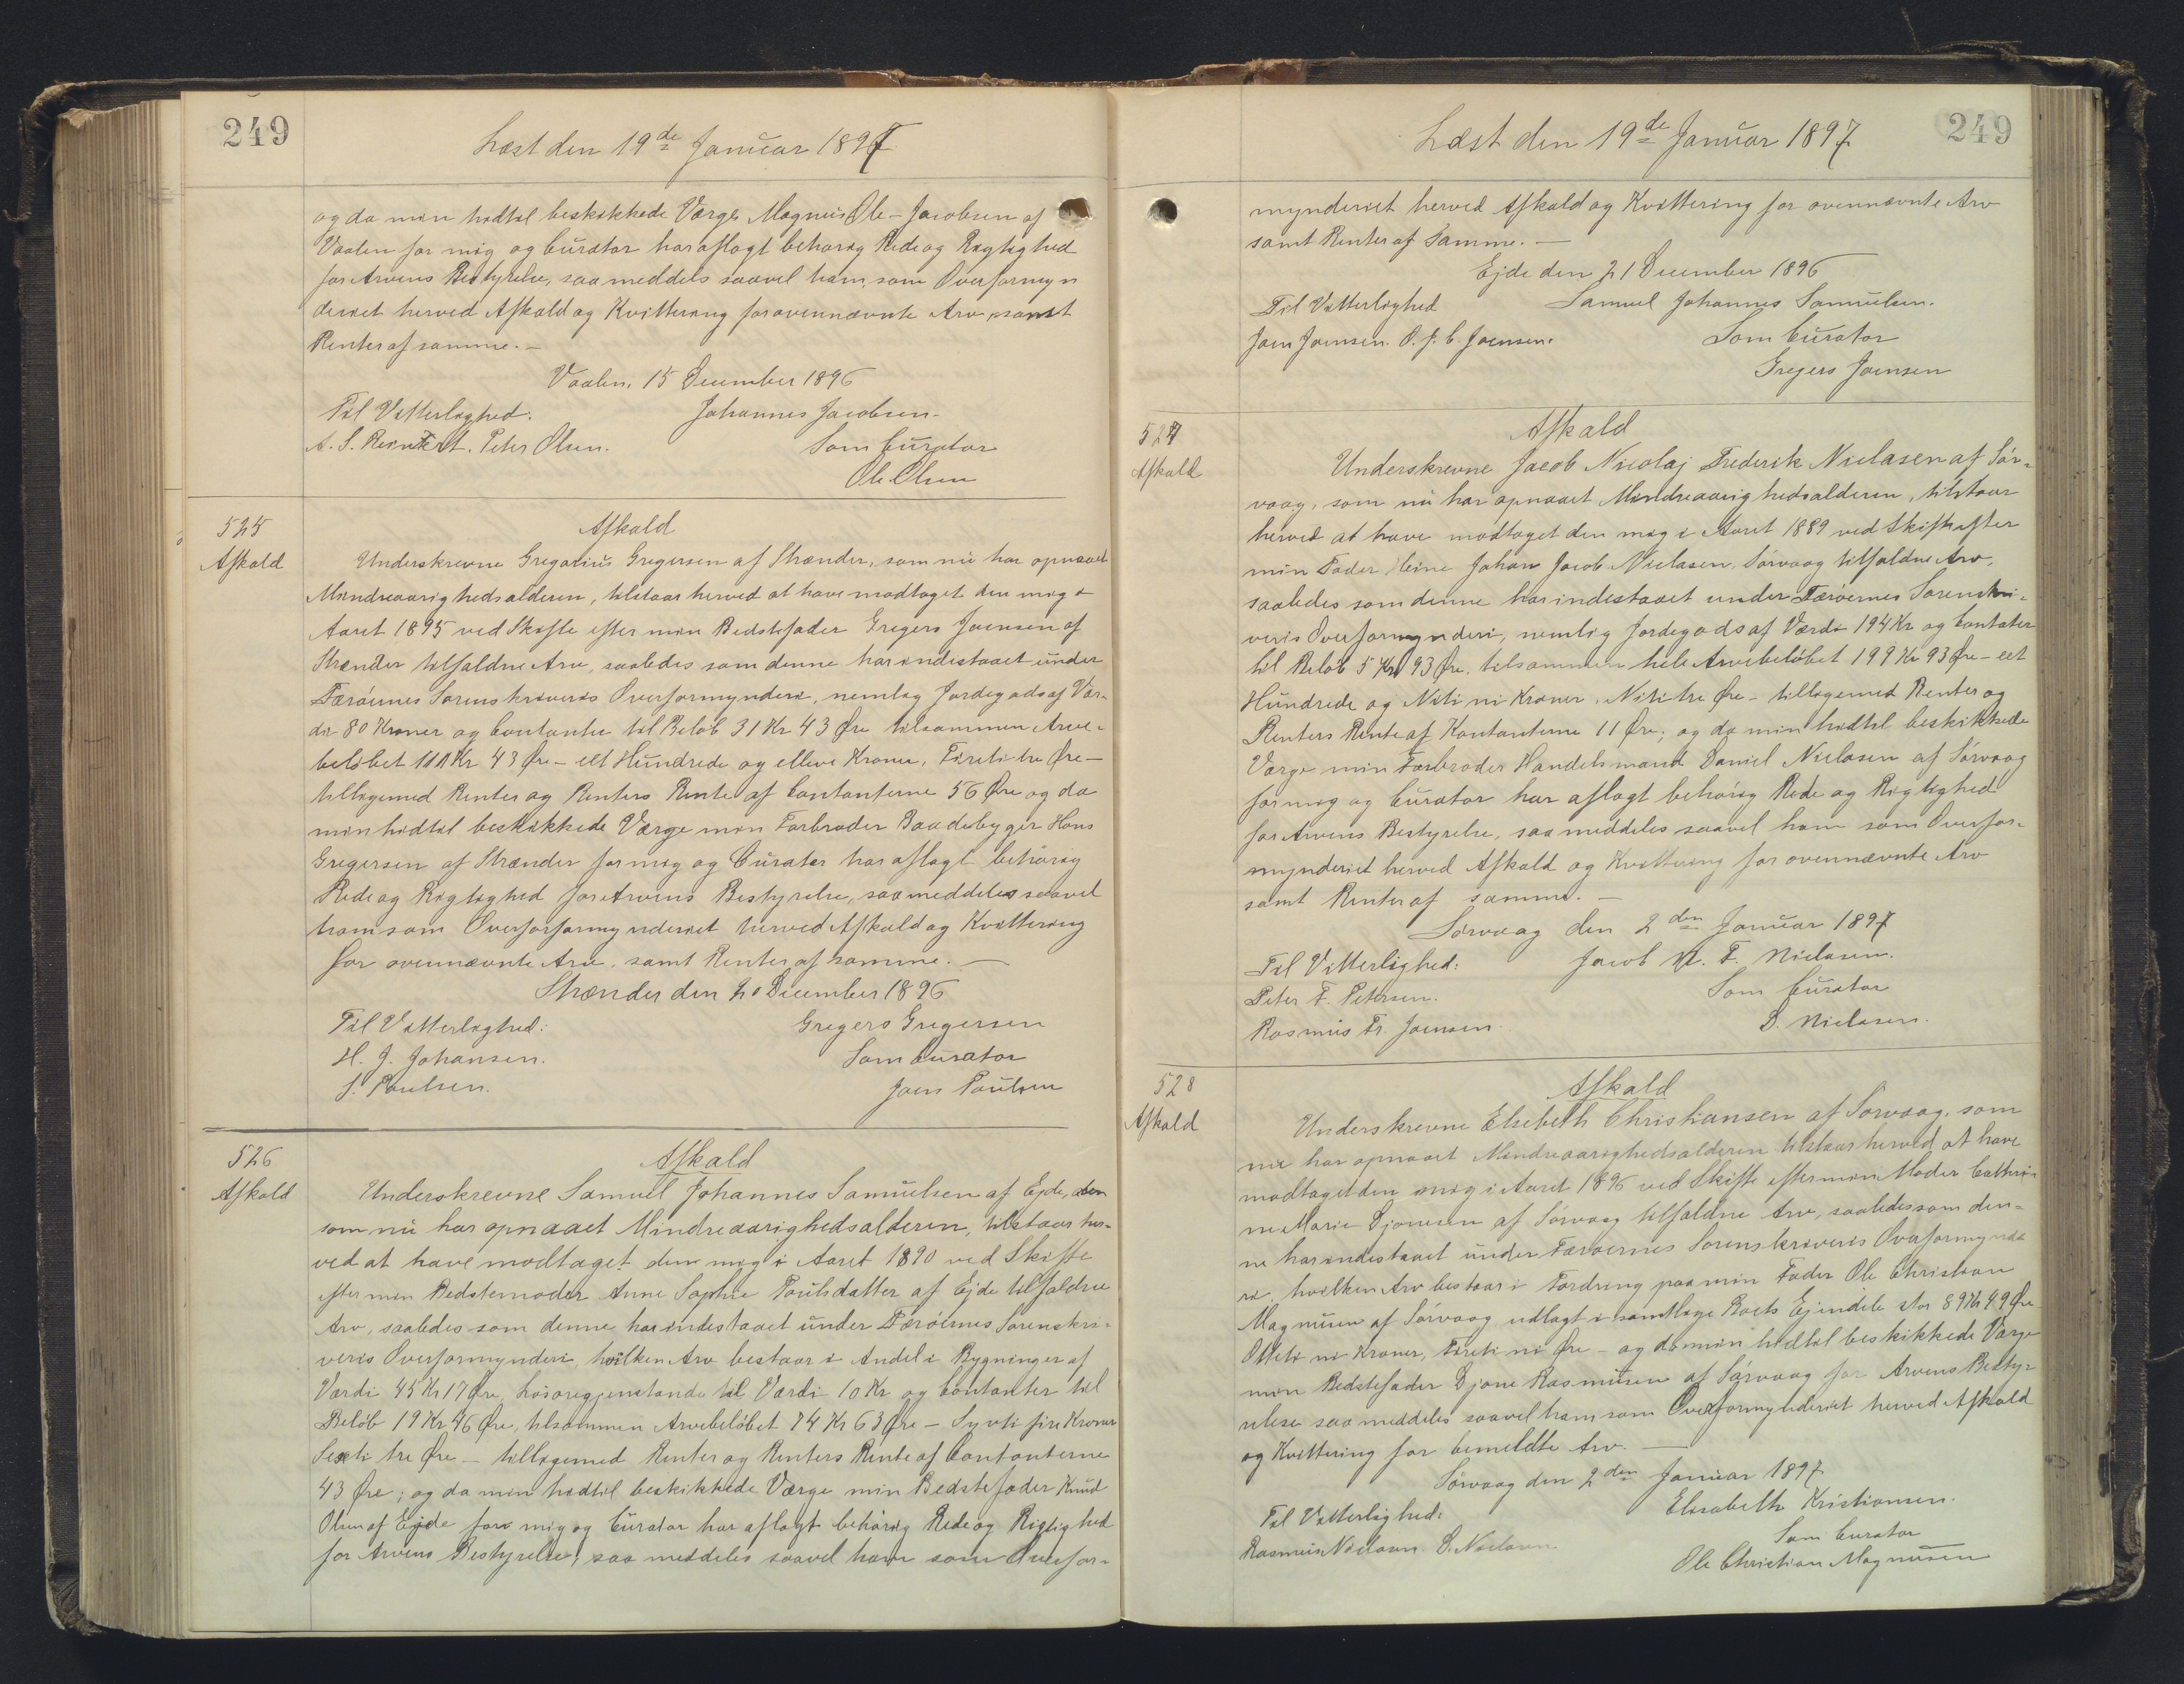 249
Læst den 19de Januar 1897
og da min hidtil beskikkede Værge Magnus Ole-Jacobsen af
Vaalen for mig og Curator har aflagt behørig Rede og Rigtighed
for Arvens Bestyrelse, saa meddels saavel ham, som Overformyn
deriet herved Afkald og Kvittering for ovennævnte Arv samt
Renter af samme. -
Vaalen, 15 December 1896
Til Vitterlighed. Johannes Jacobsen-
A. S. Reinert. Peter Olsen. Som Curator
Ole Olsen
525 Afkald
Afkald Underskrevne Gregorius Gregersen af Strænder, som nu har opnaaet
Mindreaarighedsalderen, tilstaar herved at have modtaget den mig i
Aaret 1895 ved Skifte efter min Bedstefader Gregers Joensen af
Strænder tilfaldne Arv, saaledes som denne har indestaaet under
Færøernes Sorenskriveris Overformynderi, nemlig Jordegods af Vær-
di 80 Kroner og Contanter til Beløb 31 Kr 43 Øre tilsammen Arve-
beløbet 111 Kr 43 Øre - eet Hundrede og elleve Kroner, Fireti tre Øre -
tilligemed Renter og Renters Rente af Contanterne 56 Øre og da
min hidtil beskikkede Værge min Farbroder Baadebyger Hans
Gregersen af Strænder for mig og Curator har aflagt behørig
Rede og Rigtighed for Arvens Bestyrelse, saa meddeles saavel
ham som Overforformynderiet herved Afkald og Kvittering
for ovennævnte Arv, samt Renter af samme. -
Strænder den 20 December 1896
Til Vitterlighed: Gregers Gregersen
H. J. Johansen. Som Curator
J. Poulsen. Joen Poulsen
526 Afkald
Afkald Underskrevne Samuel Johannes Samuelsen af Ejde,
som nu har opnaaet Mindreaarighedsalderen, tilstaar her-
ved at have modtaget den mig i Aaret 1890 ved Skifte
efter min Bedstemoder Anne Sophie Poulsdatter af Ejde tilfaldne
Arv, saaledes som denne har indestaaet under Færøernes Sorenskri-
veris Overformynderi, hvilken Arv bestaar i Andel i Bygninger af
Værdi 45 Kr 17 Øre, Løsøregjenstande til Værdi 10 Kr og Contanter til
Beløb 19 Kr 46 Øre, tilsammen Arvebeløbet 74 Kr 63 Øre - Syvti fire Kroner
Sexti tre Øre - tilligemed Renter og Renters Rente af Contanterne
43 Øre; og da min hidtil beskikkede Værge min Bedstefader Knud
Olsen af Ejde for mig og Curator har aflagt behørig Rede og Rigtighed
for Arvens Bestyrelse, saa meddeles saavel ham som Overfor-
Læst den 19de Januar 1897
249
mynderiet herved Afkald og Kvittering for ovennævnte Arv
samt Renter af Samme. -
Ejde den 21 December 1896
Til Vitterlighed Samuel Johannes Samuelsen.
Joen Joensen. O. J. C. Joensen. Som Curator
Gregers Joensen
527 Afkald
Afkald Underskrevne Jacob Nicolaj Frederik Nielasen af Sør-
vaag, som nu har opnaaet Mindreaarighedsalderen, tilstaar
herved at have modtaget den mig i Aaret 1889 ved Skifte efter
min Fader Heine Johan Jacob Nielasen, Sørvaag tilfaldne Arv,
saaledes som denne har indestaaet under Færøernes Sorenskri-
veris Overformynderi, nemlig Jordegods af Værdi 194 Kr og Contater
til Beløb 5 Kr 93 Øre, tilsammen hele Arvebeløbet 199 Kr 93 Øre - eet
Hundrede og Niti ni Kroner, Niti tre Øre - tilligemed Renter og
Renters Rente af Kontanterne 11 Øre; og da min hidtil beskikkede
Værge min Farbroder Handelsmand Daniel Nielasen af Sørvaag
for mig og Curator har aflagt behørig Rede og Rigtighed
for Arvens Bestyrelse, saa meddeles saavel ham som Overfor-
mynderiet herved Afkald og Kvittering for ovennævnte Arv
samt Renter af samme. -
Sørvaag den 2den Januar 1897
Til Vitterlighed: Jacob N. F. Nielasen.
Peter F. Petersen. Som Curator
Rasmus Fr. Joensen. D. Nielasen.
528 Afkald
Afkald Underskrevne Elsebeth Christiansen af Sørvaag, som
nu har opnaaet Mindreaarighedsalderen tilstaar herved at have
modtaget den mig i Aaret 1896 ved Skifte efter min Moder Cathri-
ne Marie Djonesen af Sørvaag tilfaldne Arv, saaledes som den-
ne har indestaaet under Færøernes Sorenskriveris Overformynde
ri, hvilken Arv bestaar i Fordring paa min Fader Ole Christian
Magnusen af Sørvaag udlagt i samtlige Boets Ejendele stor 89 Kr 49 Øre
Otteti ni Kroner, Fireti ni Øre - og da min hidtil beskikkede Værge
min Bedstefader Djone Rasmusen af Sørvaag for Arvens Besty-
relse saa meddeles saavel ham som Overformynderiet herved Afkald
og Kvittering for bemeldte Arv. -
Sørvaag den 2den Januar 1897
Til Vitterlighed: Elisabeth Kristiansen.
Rasmus Nielasen D. Nielasen Som Curator
Ole Christian Magnusen